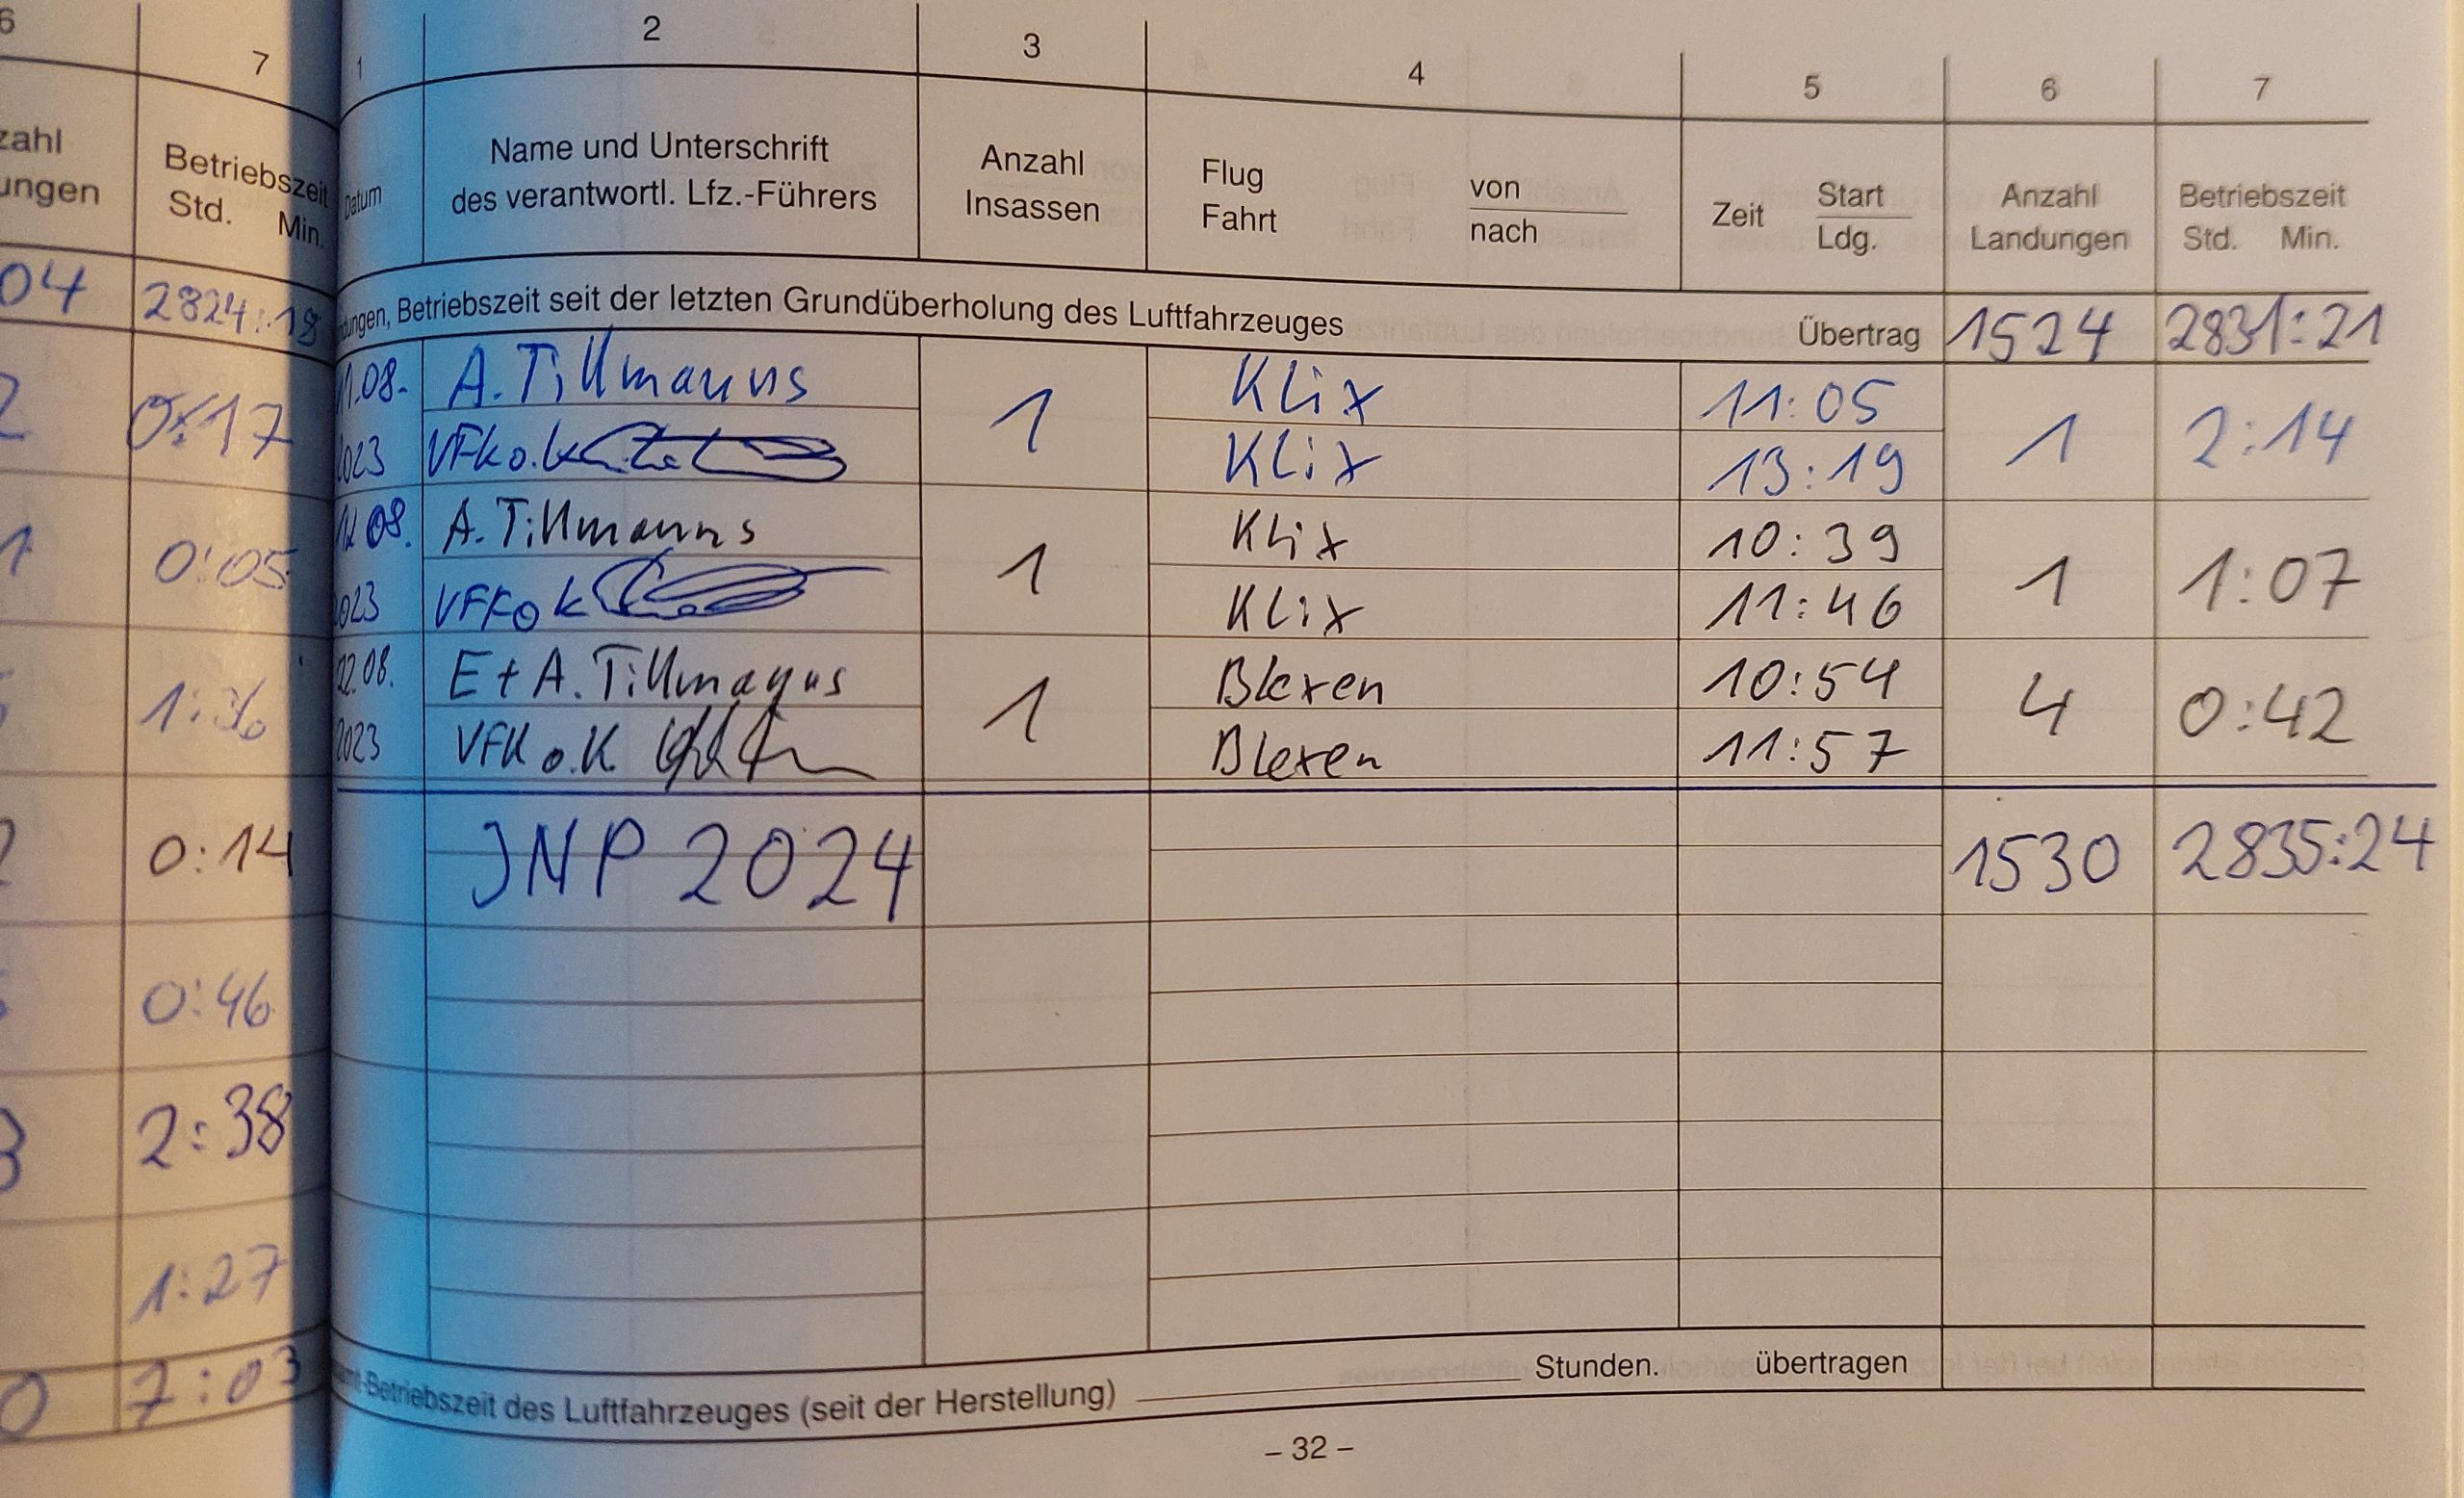 6
7
zahl
ungen
Betriebszeit
Std. Min.
04 2824:18
2 0:17
1 0:05
1:36
2 0:14
0:46
3 2:38
1:27
0 7:03
1 2 3 4 5 6 7
Datum
Name und Unterschrift
des verantwortl. Lfz.-Führers
Anzahl
Insassen
Flug
Fahrt
von
nach
Zeit
Start
Ldg.
Anzahl
Landungen
Betriebszeit
Std. Min.
dungen, Betriebszeit seit der letzten Grundüberholung des Luftfahrzeuges Übertrag 1524 2831:21
11.08. A. Tillmanns 1 Klix 11:05 1 2:14
2023 VFK o.k. Klix 13:19
08. A. Tillmanns 1 Klix 10:39 1 1:07
2023 VFK o k Klix 11:46
22.08. E + A. Tillmanns 1 Blexen 10:54 4 0:42
2023 VFK o.K. Blexen 11:57
JNP 2024 1530 2835:24
amt-Betriebszeit des Luftfahrzeuges (seit der Herstellung) Stunden. übertragen
– 32 –